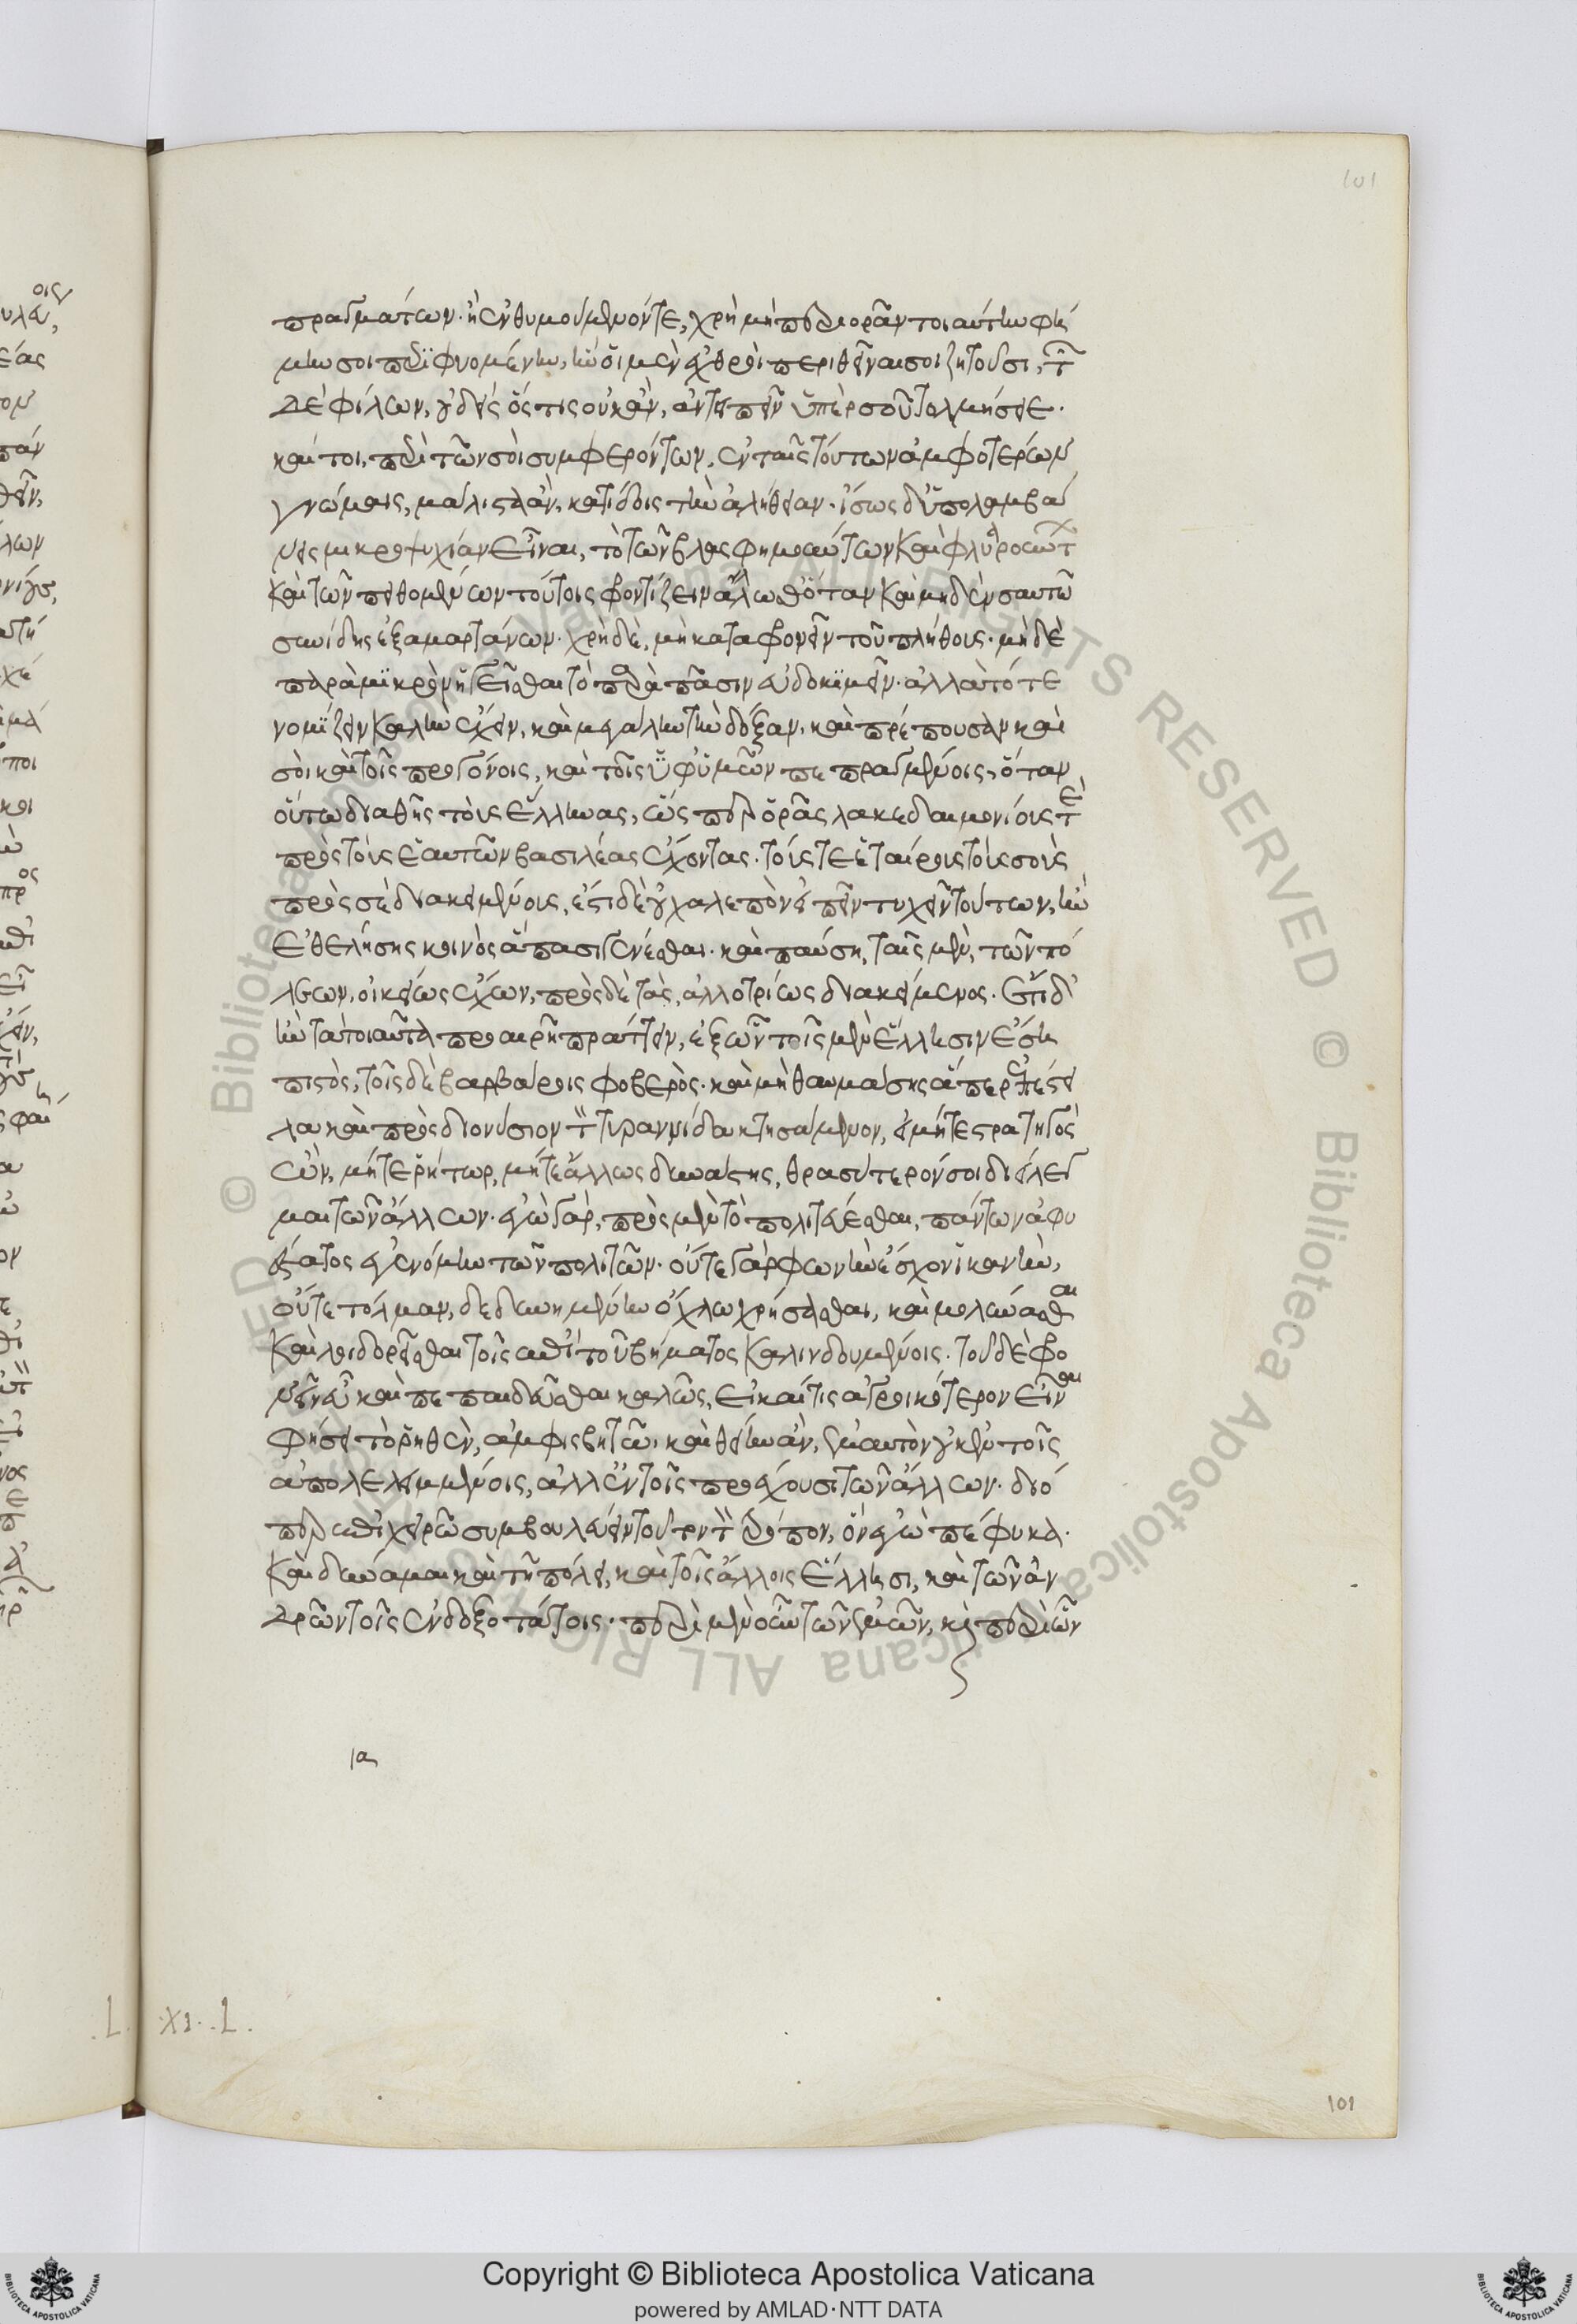 πραγμάτων· ἢ ἐνθυμούμενόν τε, χρὴ μὴ περιορᾶν τοιαύτην φή
μην σοι περϊφυομένην, ἣν οἱ μὲν ἐχθροὶ περιθεῖναι σοι ζητοῦσι, τῶν
δὲ φίλων, οὐδεὶς ὅστις οὐκ ἂν, ἀντειπεῖν ὑπὲρ σοῦ τολμήσειε·
καί τοι, περὶ τῶν σοὶ συμφερόντων, ἐν ταῖς τούτων ἀμφοτέρων
γνώμαις, μάλιστ' ἂν, κατίδοις τὴν ἀλήθειαν· ἴσως δ' ὑπολαμβά
νεις μικροψυχίαν εἶναι, τὸ τῶν βλασφημούντων καὶ φλυαρούντων
καὶ τῶν πειθομένων τούτοις φροντίζειν ἄλλως θ' ὅταν καὶ μηδὲν σαυτῶ
συνίδης ἐξαμαρτάνων· χρὴ δὲ, μὴ καταφρονεῖν τοῦ πλήθους· μὴ δὲ
παρὰ μϊκρὸν ἡγεῖσθαι τὸ παρὰ πᾶσιν εὐδοκϊμεῖν· ἀλλὰ τότε
νομΐζειν καλὴν ἔχειν, καὶ μεγάλην τὴν δόξαν, καὶ πρέπουσαν καὶ
σοὶ καὶ τοῖς προγόνοις, καὶ τοῖς ὑφ' ὑμῶν πεπραγμένοις, ὅταν
οὕτω διαθῆς τοὺς ἕλληνας, ὥσπερ ὁρᾶς λακεδαιμονίους τὲ
πρὸς τοὺς ἑαυτῶν βασιλέας ἔχοντας· τούς τε ἑταίρους τοὺς σοὺς
πρὸς σὲ διακειμένους, ἔστι δὲ οὐ χαλεπὸν εἰπεῖν τυχεῖν τούτων, ἢν
ἐθελήσης κοινὸς ἅπασι γενέσθαι· καὶ παύση, ταῖς μὲν, τῶν πό
λεων, οἰκείως ἔχων, πρὸς δὲ τὰς, ἀλλοτρίως διακείμενος· ἔτι δ'
ἢν τὰ τοιαῦτα προαιρῆ πράττειν, ἐξ ὧν τοῖς μὲν ἕλλησιν ἔση
πιστὸς, τοῖς δὲ βαρβάροις φοβερὸς· καὶ μὴ θαυμάσης ἅπερ ἐπέστει
λα καὶ πρὸς διονύσιον τὴν τυραννίδα κτησάμενον, εἰ μήτε στρατηγὸς
ὢν, μήτε ῥήτωρ, μήτε ἄλλως δυνάστης, θρασύτερόν σοι διείλεγ
μαι τῶν ἄλλων· ἐγὼ γὰρ, πρὸς μὲν τὸ πολιτεύεσθαι, πάντων ἀφυ
έστατος ἐγενόμην τῶν πολιτῶν· οὔτε γὰρ φωνὴν ἔσχον ἱκανὴν,
οὔτε τόλμαν, δεδυνημένην ὄχλω χρήσασθαι, καὶ μολύνασθαι
καὶ λοιδορεῖσθαι τοῖς ἐπὶ τοῦ βήματος καλινδουμένοις· τοῦ δὲ φρο
νεῖν εὖ καὶ πεπαιδεῦσθαι καλῶς, εἰ καί τις ἀγροικότερον εἶναι
φήσει τὸ ῥηθὲν, ἀμφισβητῶ, καὶ θείην ἂν, ἐμαυτὸν οὐκ ἐν τοῖς
ἀπολελειμμένοις, ἀλλ' ἐν τοῖς προέχουσι τῶν ἄλλων· διό
περ ἐπιχειρῶ συμβουλεύειν τοῦτον τὸν τρόπον, ὃν ἐγὼ πέφυκα·
καὶ δύναμαι καὶ τῆ πόλει, καὶ τοῖς ἄλλοις ἕλλησι, καὶ τῶν ἀν
δρῶν τοῖς ἐνδοξοτάτοις· περὶ μὲν οὖν τῶν ἐμῶν, καὶ περὶ ὧν
ια
.L. .XI. .L.
101
101